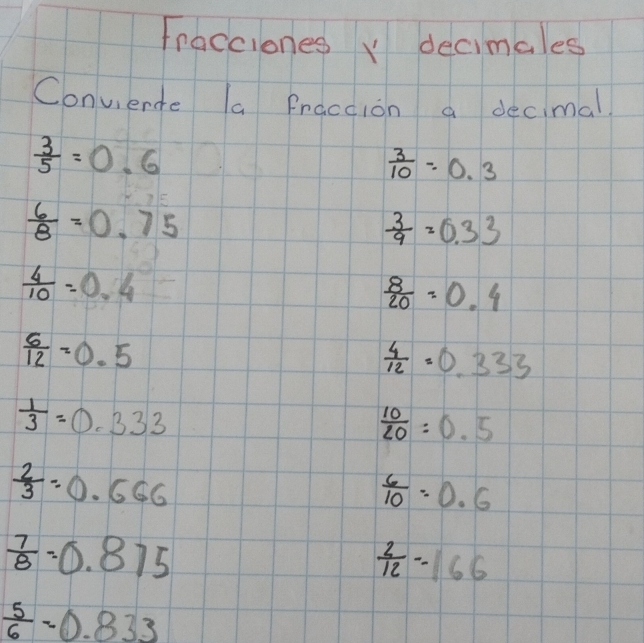 Fracciones y decimales
Convierte la fracción a decimal.
3/5 = 0.6
6/8 = 0.75
4/10 = 0.4
6/12 = 0.5
1/3 = 0.333
2/3 = 0.666
7/8 = 0.875
5/6 = 0.833
3/10 = 0.3
3/9 = 0.33
8/20 = 0.4
4/12 = 0.333
10/20 = 0.5
6/10 = 0.6
2/12 = 166